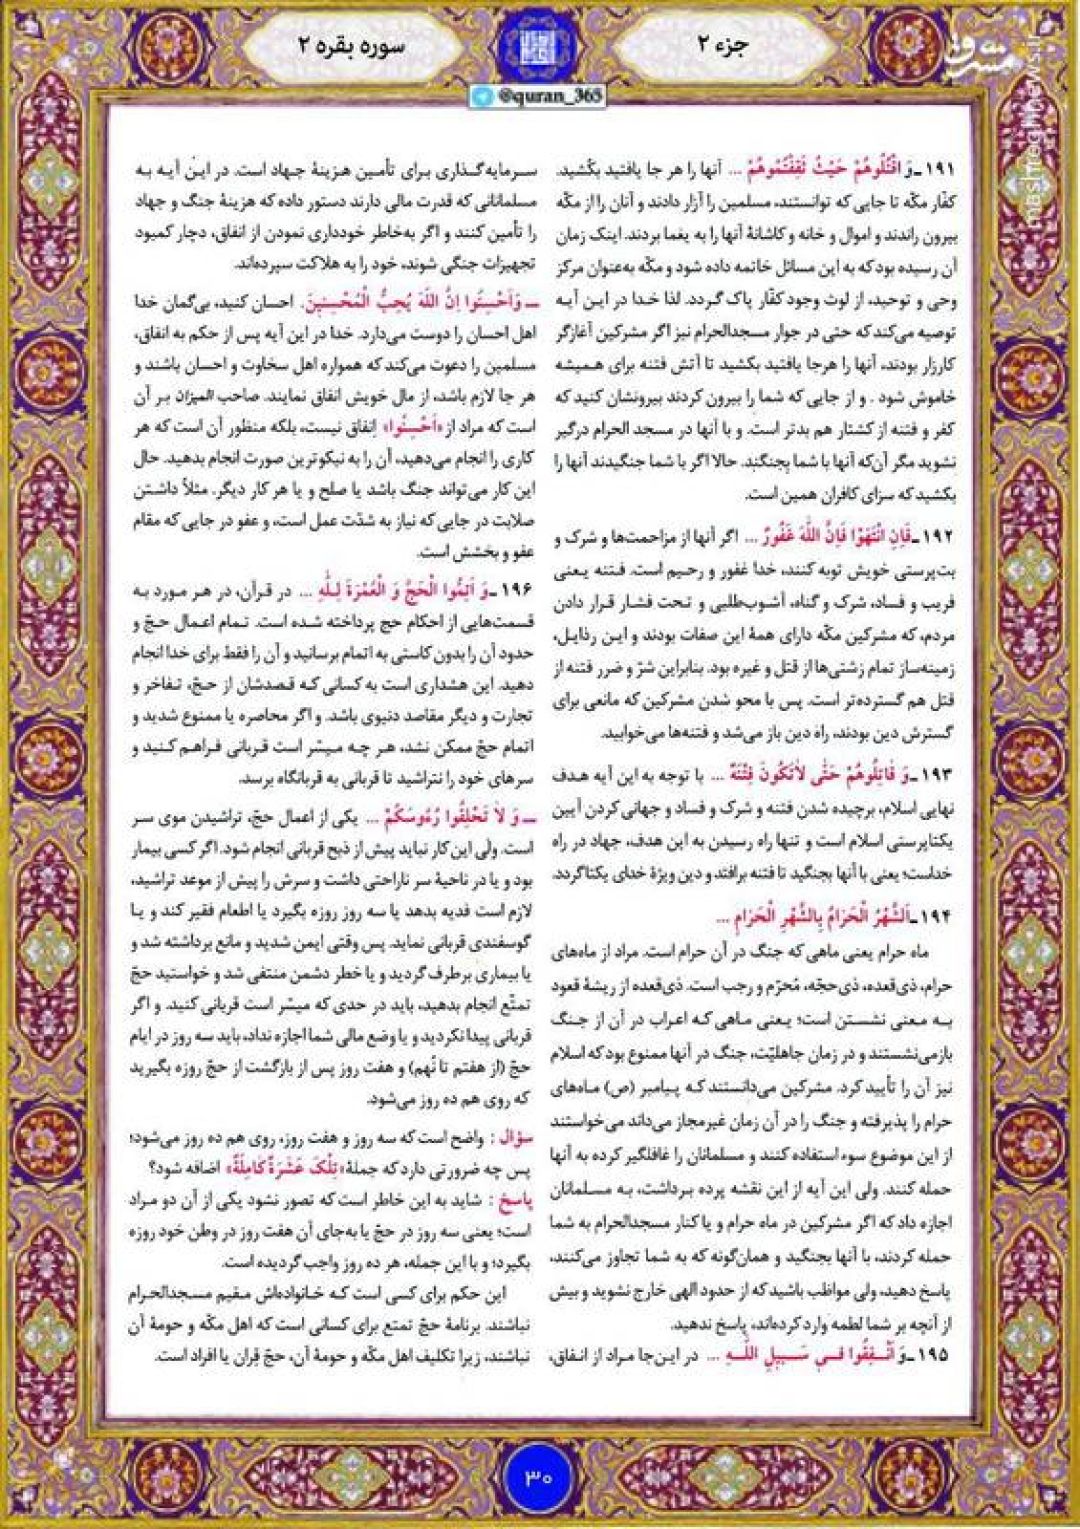 جزء ۲
سوره بقره ۲
@quran_365
مشرق
mashreghnews.ir
۱۹۱ـ وَ اقْتُلُوهُمْ حَیْثُ ثَقِفْتُمُوهُمْ ... آنها را هر جا یافتید بکُشید.
کفّار مکّه تا جایی که توانستند، مسلمین را آزار دادند و آنان را از مکّه
بیرون راندند و اموال و خانه و کاشانهٔ آنها را به یغما بردند. اینک زمان
آن رسیده بود که به این مسائل خاتمه داده شود و مکّه به‌عنوان مرکز
وحی و توحید، از لوث وجود کفّار پاک گردد. لذا خدا در این آیه
توصیه می‌کند که حتی در جوار مسجدالحرام نیز اگر مشرکین آغازگر
کارزار بودند، آنها را هرجا یافتید بکشید تا آتش فتنه برای همیشه
خاموش شود . و از جایی که شما را بیرون کردند بیرونشان کنید که
کفر و فتنه از کشتار هم بدتر است. و با آنها در مسجد الحرام درگیر
نشوید مگر آن‌که آنها با شما بِجنگند. حالا اگر با شما جنگیدند آنها را
بکشید که سزای کافران همین است.
۱۹۲ـ فَاِنِ انْتَهَوْا فَاِنَّ اللّٰهَ غَفُورٌ ... اگر آنها از مزاحمت‌ها و شرک و
بت‌پرستی خویش توبه کنند، خدا غفور و رحیم است. فتنه یعنی
فریب و فساد، شرک و گناه، آشوب‌طلبی و تحت فشار قرار دادن
مردم، که مشرکین مکّه دارای همهٔ این صفات بودند و این رذایل،
زمینه‌ساز تمام زشتی‌ها از قتل و غیره بود. بنابراین شرّ و ضرر فتنه از
قتل هم گسترده‌تر است. پس با محو شدن مشرکین که مانعی برای
گسترش دین بودند، راه دین باز می‌شد و فتنه‌ها می‌خوابید.
۱۹۳ـ وَ قَاتِلُوهُمْ حَتّٰی لَاتَکُونَ فِتْنَةٌ ... با توجه به این آیه هدف
نهایی اسلام، برچیده شدن فتنه و شرک و فساد و جهانی کردن آیین
یکتاپرستی اسلام است و تنها راه رسیدن به این هدف، جهاد در راه
خداست؛ یعنی با آنها بجنگید تا فتنه برافتد و دین ویژهٔ خدای یکتا گردد.
۱۹۴ـ اَلشَّهْرُ الْحَرَامُ بِالشَّهْرِ الْحَرَامِ ...
ماه حرام یعنی ماهی که جنگ در آن حرام است. مراد از ماه‌های
حرام، ذی‌قعده، ذی‌حجّه، مُحرّم و رجب است. ذی‌قعده از ریشهٔ قعود
به معنی نشستن است؛ یعنی ماهی که اعراب در آن از جنگ
بازمی‌نشستند و در زمان جاهلیّت، جنگ در آنها ممنوع بود که اسلام
نیز آن را تأیید کرد. مشرکین می‌دانستند که پیامبر (ص) ماه‌های
حرام را پذیرفته و جنگ را در آن زمان غیرمجاز می‌داند می‌خواستند
از این موضوع سوء استفاده کنند و مسلمانان را غافلگیر کرده به آنها
حمله کنند. ولی این آیه از این نقشه پرده برداشت، به مسلمانان
اجازه داد که اگر مشرکین در ماه حرام و یا کنار مسجدالحرام به شما
حمله کردند، با آنها بجنگید و همان‌گونه که به شما تجاوز می‌کنند،
پاسخ دهید، ولی مواظب باشید که از حدود الهی خارج نشوید و بیش
از آنچه بر شما لطمه وارد کرده‌اند، پاسخ ندهید.
۱۹۵ـ وَ أَنْفِقُوا فِی سَبِیلِ اللّٰهِ ... در این‌جا مراد از انفاق،
سرمایه‌گذاری برای تأمین هزینهٔ جهاد است. در این آیه به
مسلمانانی که قدرت مالی دارند دستور داده که هزینهٔ جنگ و جهاد
را تأمین کنند و اگر به‌خاطر خودداری نمودن از انفاق، دچار کمبود
تجهیزات جنگی شوند، خود را به هلاکت سپرده‌اند.
ـ وَاَحْسِنُوا اِنَّ اللّٰهَ یُحِبُّ الْمُحْسِنِینَ. احسان کنید، بی‌گمان خدا
اهل احسان را دوست می‌دارد. خدا در این آیه پس از حکم به انفاق،
مسلمین را دعوت می‌کند که همواره اهل سخاوت و احسان باشند و
هر جا لازم باشد، از مال خویش انفاق نمایند. صاحب المیزان بر آن
است که مراد از «اَحْسِنُوا» اِنفاق نیست، بلکه منظور آن است که هر
کاری را انجام می‌دهید، آن را به نیکوترین صورت انجام بدهید. حال
این کار می‌تواند جنگ باشد یا صلح و یا هر کار دیگر. مثلاً داشتن
صلابت در جایی که نیاز به شدّت عمل است، و عفو در جایی که مقام
عفو و بخشش است.
۱۹۶ـ وَ اَتِمُّوا الْحَجَّ وَ الْعُمْرَةَ لِلّٰهِ ... در قرآن، در هر مورد به
قسمت‌هایی از احکام حج پرداخته شده است. تمام اعمال حجّ و
حدود آن را بدون کاستی به اتمام برسانید و آن را فقط برای خدا انجام
دهید. این هشداری است به کسانی که قصدشان از حجّ، تفاخر و
تجارت و دیگر مقاصد دنیوی باشد. و اگر محاصره یا ممنوع شدید و
اتمام حجّ ممکن نشد، هر چه میسّر است قربانی فراهم کنید و
سرهای خود را نتراشید تا قربانی به قربانگاه برسد.
ـ وَ لاٰ تَحْلِقُوا رُءُوسَکُمْ ... یکی از اعمال حجّ، تراشیدن موی سر
است. ولی این کار نباید پیش از ذبح قربانی انجام شود. اگر کسی بیمار
بود و یا در ناحیهٔ سر ناراحتی داشت و سرش را پیش از موعد تراشید،
لازم است فدیه بدهد یا سه روز روزه بگیرد یا اطعام فقیر کند و یا
گوسفندی قربانی نماید. پس وقتی ایمن شدید و مانع برداشته شد و
یا بیماری برطرف گردید و یا خطر دشمن منتفی شد و خواستید حجّ
تمتّع انجام بدهید، باید در حدی که میسّر است قربانی کنید. و اگر
قربانی پیدا نکردید و یا وضع مالی شما اجازه نداد، باید سه روز در ایام
حجّ (از هفتم تا نُهم) و هفت روز پس از بازگشت از حجّ روزه بگیرید
که روی هم ده روز می‌شود.
سؤال : واضح است که سه روز و هفت روز، روی هم ده روز می‌شود؛
پس چه ضرورتی دارد که جملهٔ «تِلْکَ عَشَرَةٌ کَامِلَةٌ» اضافه شود؟
پاسخ : شاید به این خاطر است که تصور نشود یکی از آن دو مراد
است؛ یعنی سه روز در حجّ یا به‌جای آن هفت روز در وطن خود روزه
بگیرد؛ و با این جمله، هر ده روز واجب گردیده است.
این حکم برای کسی است که خانواده‌اش مقیم مسجدالحرام
نباشند. برنامهٔ حجّ تمتع برای کسانی است که اهل مکّه و حومهٔ آن
نباشند، زیرا تکلیف اهل مکّه و حومهٔ آن، حجّ قِران یا افراد است.
۳۰